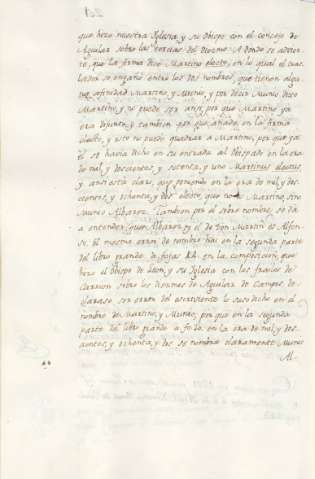 que hizo nuestra Iglesia, y su Obispo con el concejo de
Aguilar sobre las tercias del diezmo. A donde se advier-
te, que la firma dice Martino electo, en lo qual el tras-
ladar se engañó entre los dos nombres, que tienen algu-
na afinidad Martino, y Munio, y por decir Munio dixo
Martino, y no puede ser así, por que Martino ya
era difunto, y tambien por que añade en la firma
electo, y esto no puede quadrar a Martino, por que ya
el se havia dicho en su entrada al Obispado en la era
de mil, y doscientos, y setenta, y uno Martinus electus,
y así está claro, que poniendo en la era de mil, y dos-
cientos, y ochenta, y dos electo, que no Martino, sino
Munio Albaroz. Tambien por el sobre nombre, se dá
a entender, que Albaroz es el de Don Martin es Alfon-
so. El mesmo error de nombre hai en la segunda parte
del libro grande de fojas en la composicion, que
hizo el Obispo de Leon, y su Iglesia con los frailes de
Carrion sobre los diezmos de Aguilar de Campos de-
clarase ser error del escribiente lo susodicho en el
nombre de Martino, y Munio, por que en la segunda
parte del libro grande a fo. en la era de mil, y dos-
cientos, y ochenta, y dos se nombra claramente Munio
Al-